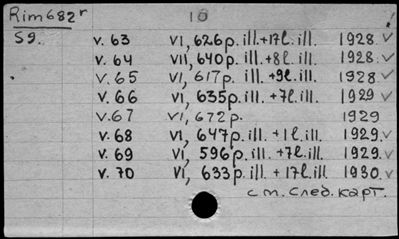 Rim682r 10
S9. v. 63 VI, 626p. ill.+17l. ill. 1928. ✓
v. 64 VII, 640p. ill.+8l. ill. 1928. ✓
v. 65 VI, 617p. ill. +9l. ill. 1928 ✓
v. 66 VI, 635p. ill. +7l. ill. 1929 ✓
v.67 VI, 672p. 1929
v. 68 VI, 647p. ill. +1l. ill. 1929. ✓
v. 69 VI, 596p. ill. +7l. ill. 1929. ✓
v. 70 VI, 633p. ill. + 17l. ill 1930. ✓
см. след. карт.